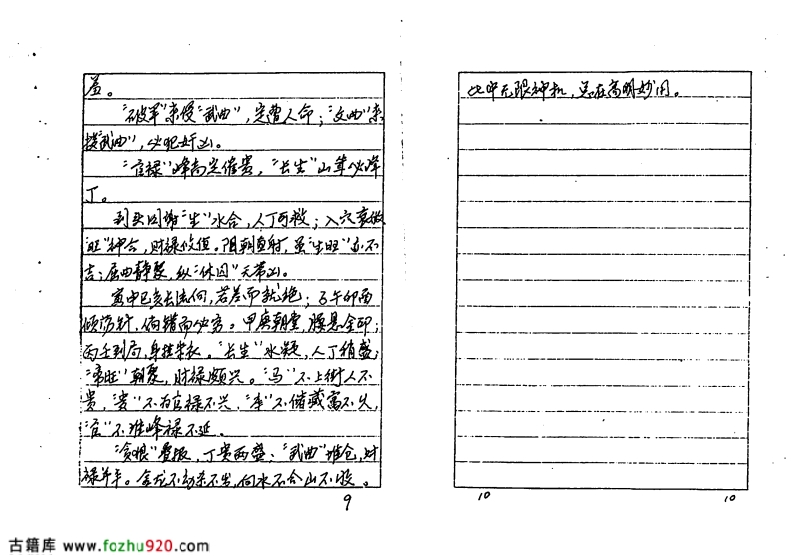 羞。
“破军”来侵“武曲”，定遭人命；“文曲”来
拨“武曲”，必犯奸凶。
“官禄”峰高定催贵，“长生”山耸必峰
丁。
到头回谢“生”水合，人丁可救；入穴衰微
“旺”神合，财禄攸值。阻朝直射，虽“生旺”亦不
吉；屈曲静聚，纵“休囚”无带凶。
寅申巳亥长流何，若差而就绝；子午卯酉
倾分针，向错而必穷。甲庚朝堂，腰悬金印；
丙壬到局，身挂紫衣。“长生”水凝，人丁稍盛；
“帝旺”朝聚，财禄颇兴。“马”不上街人不
贵，“贵”不 官禄不兴，“库”不储藏富不久，
“官”不堆峰禄不延。
“贪狼”叠报，丁贵两盛；“武曲”堆仓，财
禄并丰。金龙不动杀不生，向水不合山不收。
9
此中无限神机，总在高明妙用。
10
10
古籍库 www.fozhu920.com